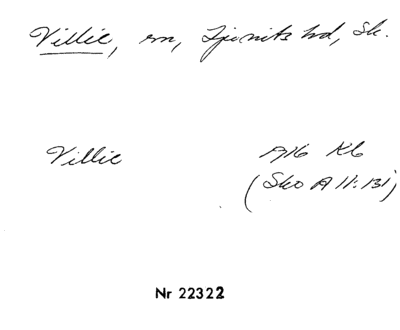 Villie, rm, Gjønits hd, Sk.
Villie 1916 Kb
(Sko A 11: 131)
Nr 22322